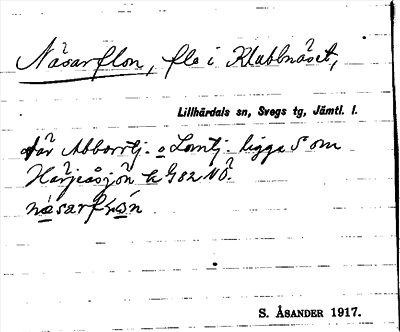 Näsarflon, flo i Klabbnäset,
Lillhärdals sn, Svegs tg, Jämtl. l.
där Abborrtj. o Lomtj. ligga S om
Härjeåsjön k G 82 NÖ.
S. ÅSANDER 1917.